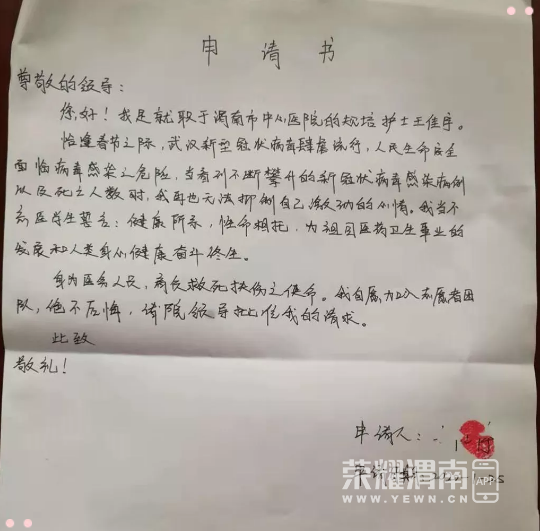 申请书
尊敬的领导：
您好！我是就职于渭南市中心医院的规培护士王佳序。
恰逢春节之际，武汉新型冠状病毒肆虐流行，人民生命安全
面临病毒感染之危险，当看到不断攀升的新冠状病毒感染病例
以及死亡人数时，我再也无法抑制自己激动的心情。我当不
忘医学生誓言：健康所系，性命相托，为祖国医药卫生事业的
发展和人类身心健康奋斗终生。
身为医务人员，肩负救死扶伤之使命。我自愿加入志愿者团
队，绝不后悔，请院领导批准我的请求。
此致
敬礼！
申请人：
荣耀渭南 APP
WWW.YEWN.CN